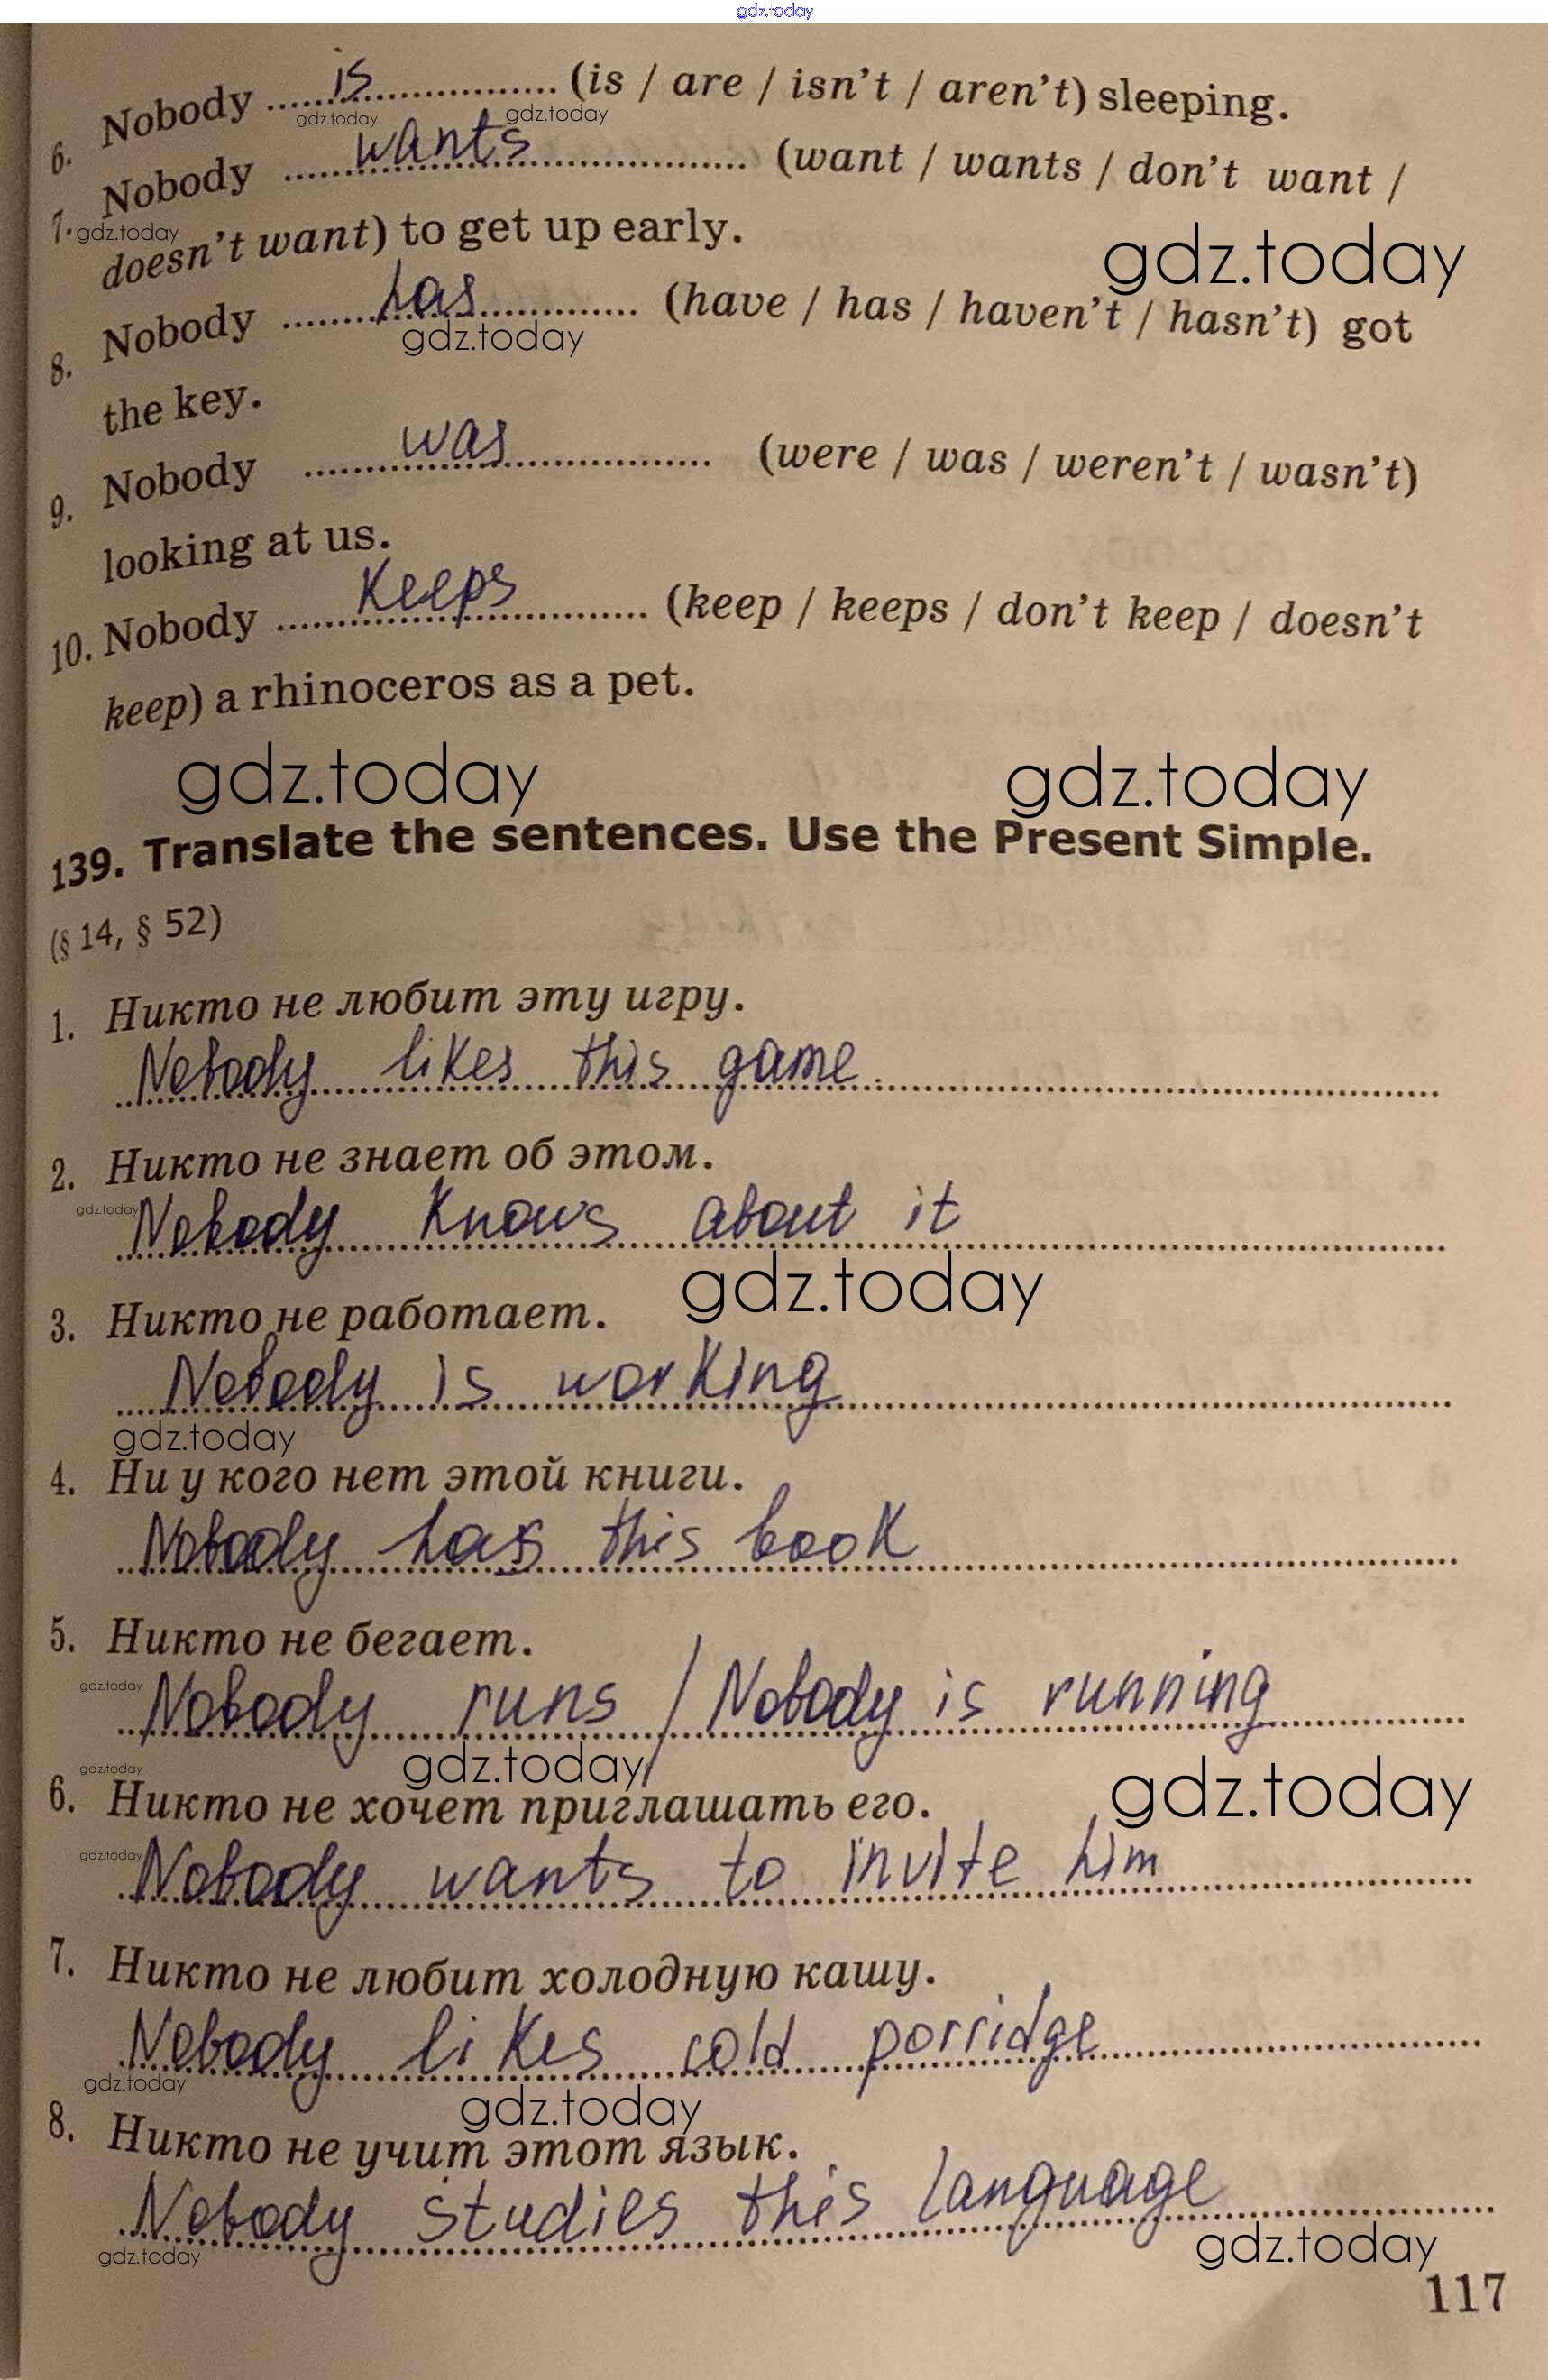 gdz.today
6. Nobody ...... is ...... (is / are / isn't / aren't) sleeping.
gdz.today gdz.today
7. Nobody ...... wants ...... (want / wants / don't want /
gdz.today
doesn't want) to get up early.
gdz.today
8. Nobody ...... has ...... (have / has / haven't / hasn't) got
gdz.today
the key.
9. Nobody ...... was ...... (were / was / weren't / wasn't)
looking at us.
10. Nobody ...... keeps ...... (keep / keeps / don't keep / doesn't
keep) a rhinoceros as a pet.
gdz.today gdz.today
139. Translate the sentences. Use the Present Simple.
(§ 14, § 52)
1. Никто не любит эту игру.
Nobody likes this game.
2. Никто не знает об этом.
gdz.today
Nobody knows about it
gdz.today
3. Никто не работает.
Nobody is working
gdz.today
4. Ни у кого нет этой книги.
Nobody has this book
5. Никто не бегает.
gdz.today
Nobody runs / Nobody is running
gdz.today gdz.today gdz.today
6. Никто не хочет приглашать его.
gdz.today
Nobody wants to invite him
7. Никто не любит холодную кашу.
Nobody likes cold porridge
gdz.today gdz.today
8. Никто не учит этот язык.
Nobody studies this language
gdz.today gdz.today
117